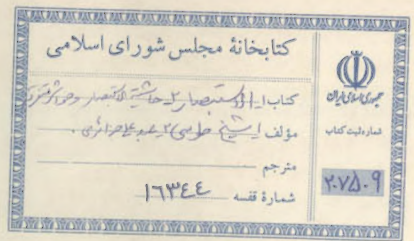 کتابخانهٔ مجلس شورای اسلامی
کتاب ۱- الاستبصار ۲- حاشیة الاستبصار
مؤلف ۱- شیخ طوسی ۲-
مترجم
شمارهٔ قفسه ۱۶۳۴۴
جمهوری اسلامی ایران
شماره ثبت کتاب
۲۰۷۵۰۹